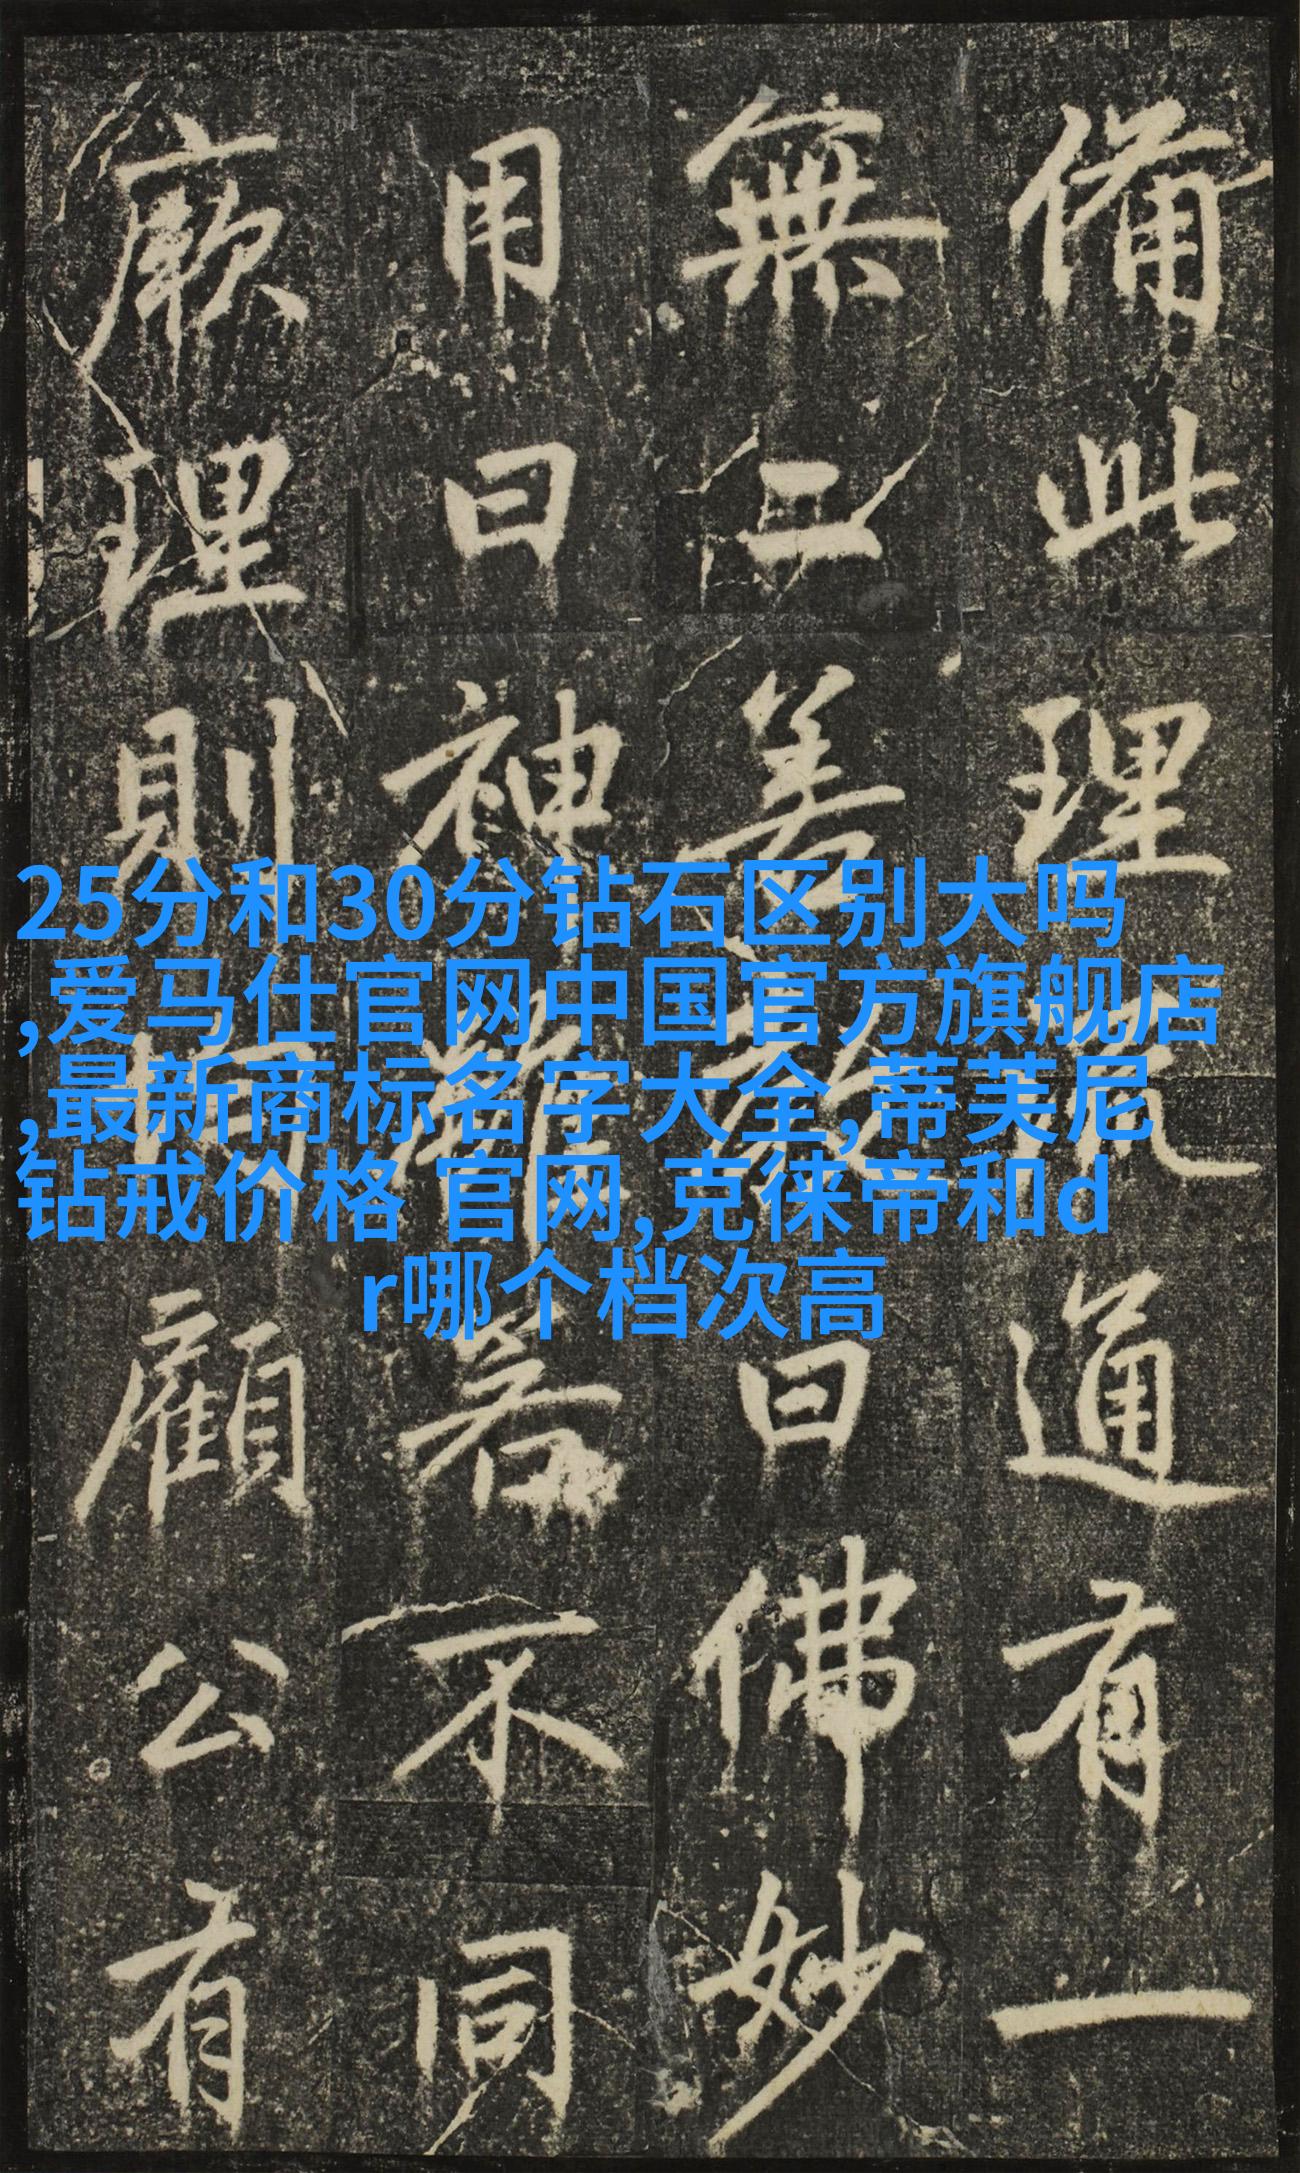 備此理通有一
無二善曰佛妙
用曰神雖若不同
厥理則顧公有
25分和30分钻石区别大吗
,爱马仕官网中国官方旗舰店
,最新商标名字大全,蒂芙尼
钻戒价格 官网,克徕帝和d
r哪个档次高